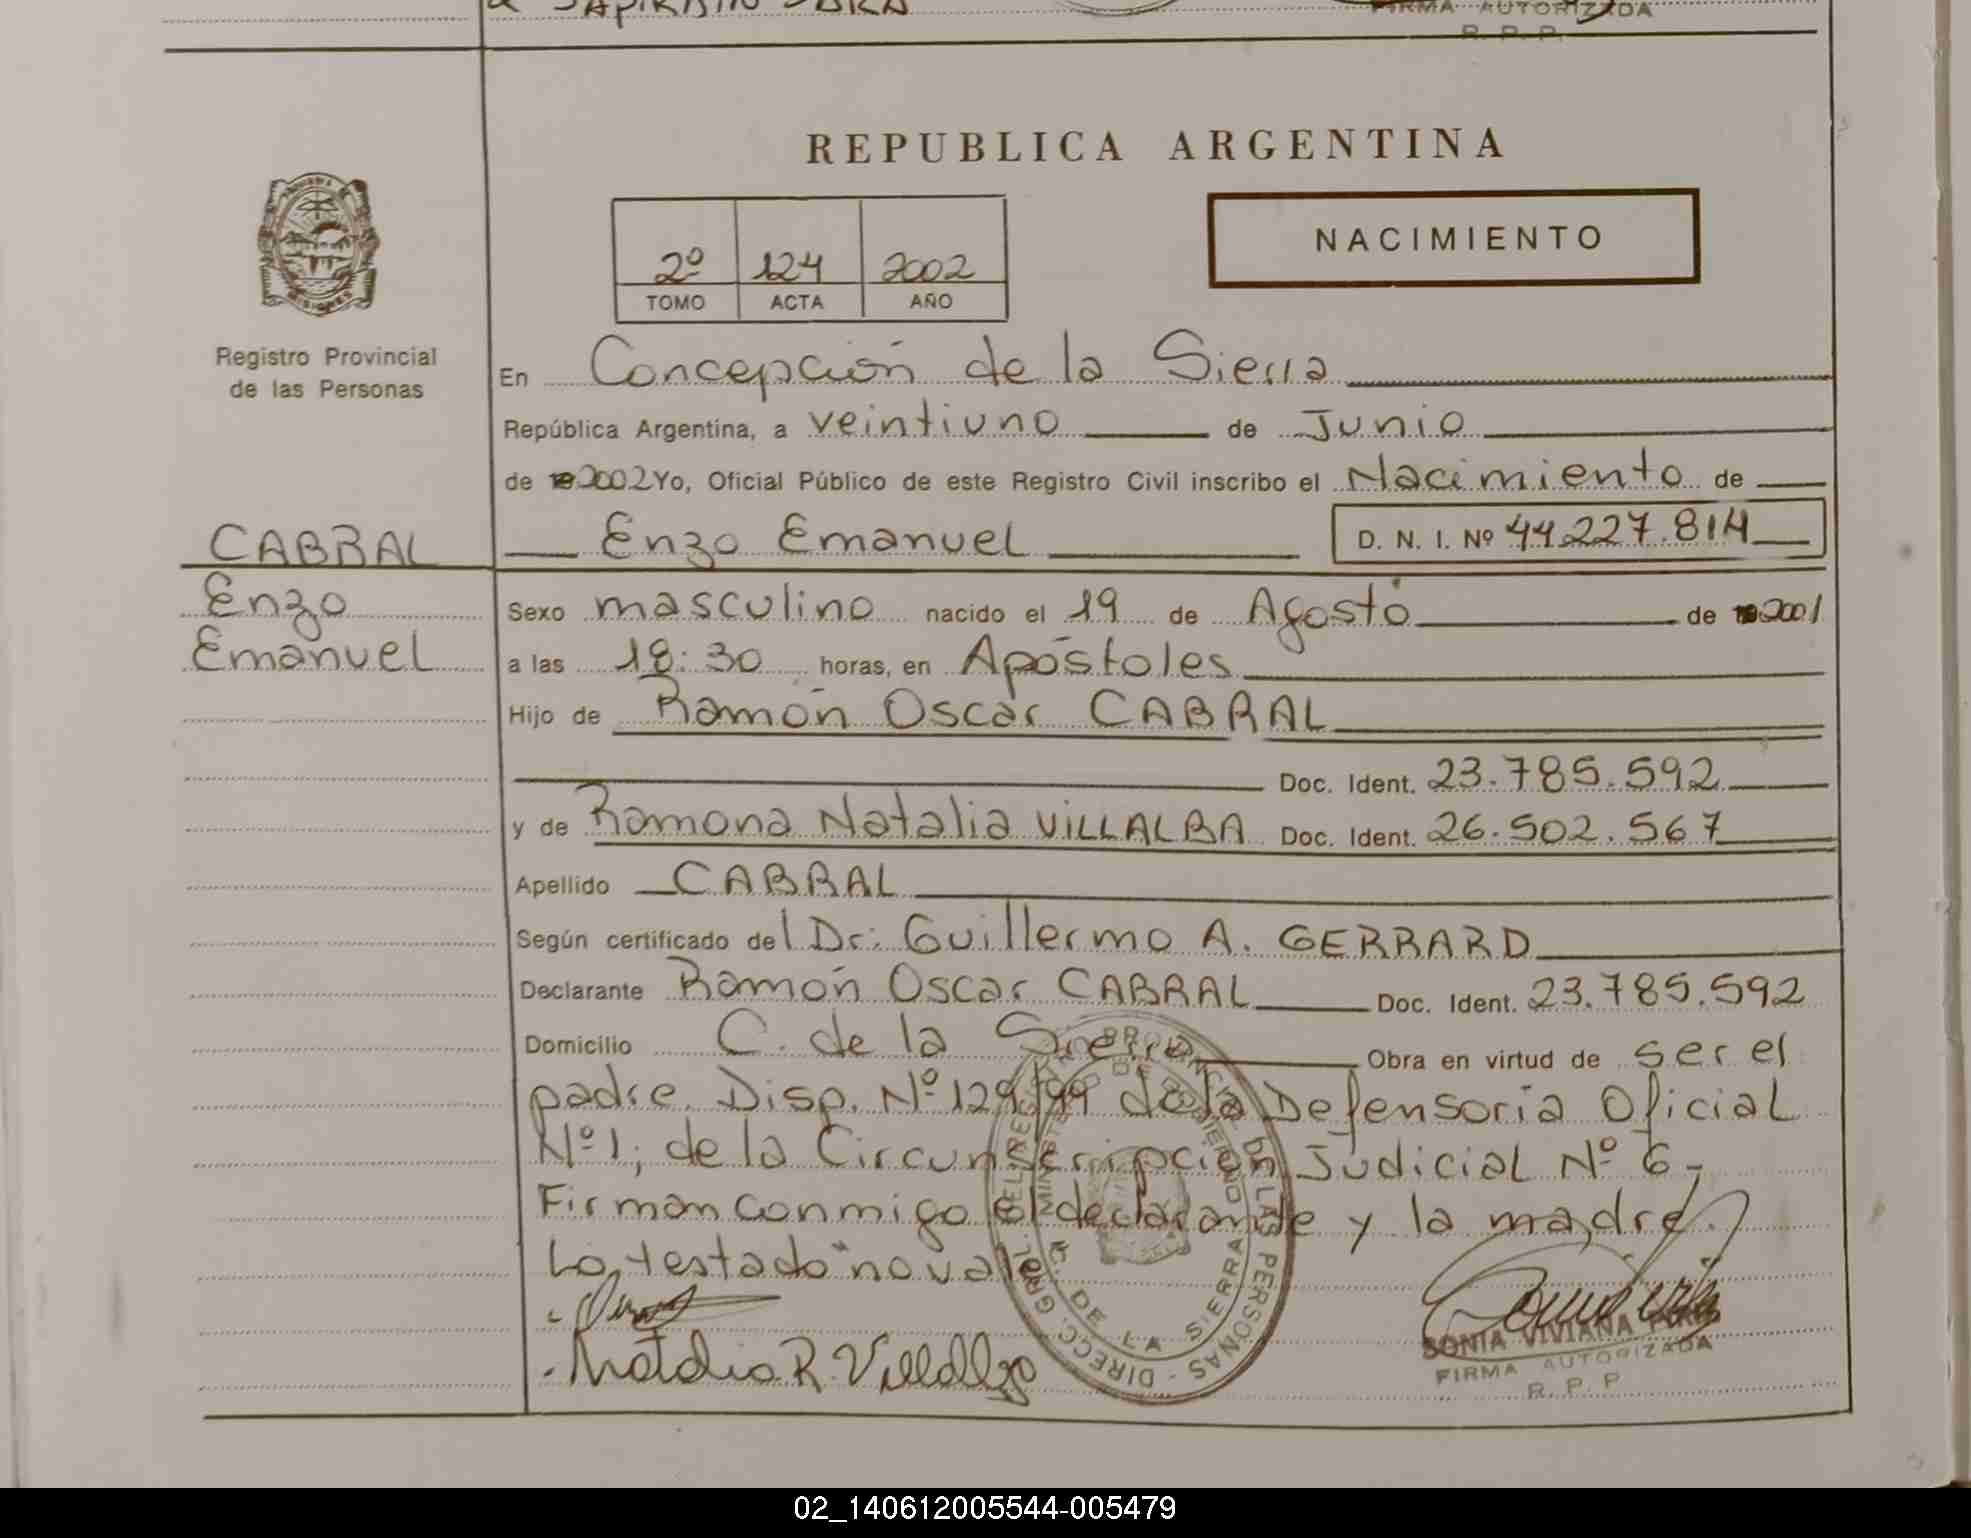 & SAPIRAIN SARA
FIRMA AUTORIZADA
R. P. P.
REPUBLICA ARGENTINA
NACIMIENTO
2º 124 2002
TOMO ACTA AÑO
MISIONES
Registro Provincial
de las Personas
En Concepción de la Sierra
República Argentina, a veintiuno de Junio
de 2002 Yo, Oficial Público de este Registro Civil inscribo el Nacimiento de
CABRAL Enzo Emanuel D. N. I. Nº 44.227.814
Enzo
Emanuel
Sexo masculino nacido el 19 de Agosto de 2001
a las 18:30 horas, en Apóstoles
Hijo de Ramón Oscar CABRAL
Doc. Ident. 23.785.592
y de Ramona Natalia VILLALBA Doc. Ident. 26.502.567
Apellido CABRAL
Según certificado del Dr: Guillermo A. GERRARD
Declarante Ramón Oscar CABRAL Doc. Ident. 23.785.592
Domicilio C. de la Sierra Obra en virtud de ser el
padre. Disp. Nº 129/99 de la Defensoria Oficial
Nº1; de la Circunscripción Judicial Nº 6-
Firman conmigo el declarante y la madre.
Lo testado "no vale
Natalia R. Villalba
DIRECC. GRAL. DEL REGISTRO PROVINCIAL DE LAS PERSONAS
MINISTERIO DE GOBIERNO
C. DE LA SIERRA
SONIA VIVIANA
FIRMA AUTORIZADA
R. P. P
02_140612005544-005479